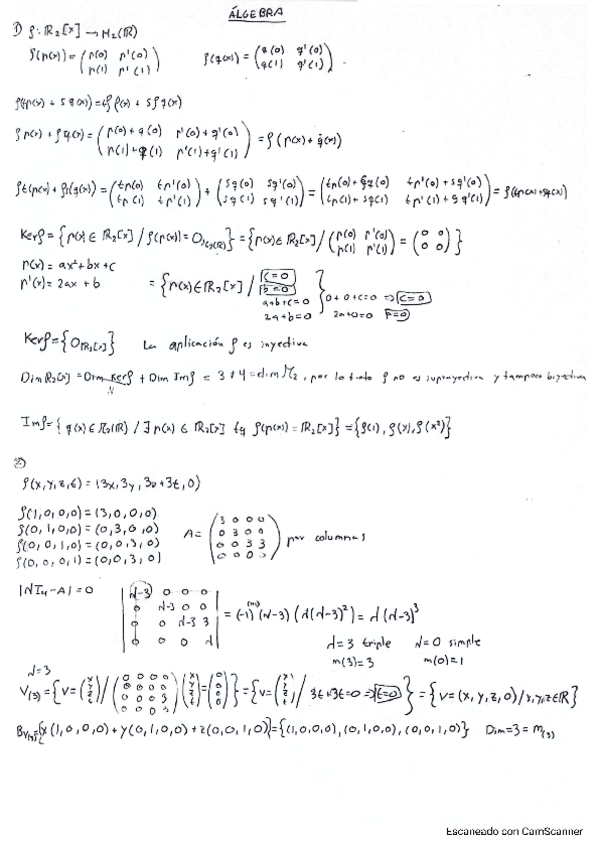 ÁLGEBRA
1) f: ℝ₂[x] → M₂(ℝ)
f(p(x)) = (p(0) p'(0) / p(1) p'(1)) f(q(x)) = (q(0) q'(0) / q(1) q'(1))
f(t p(x) + s q(x)) = t f p(x) + s f q(x)
f p(x) + f q(x) = (p(0)+q(0) p'(0)+q'(0) / p(1)+q(1) p'(1)+q'(1)) = f(p(x)+q(x))
f t(p(x)) + f s(q(x)) = (tp(0) tp'(0) / tp(1) tp'(1)) + (sq(0) sq'(0) / sq(1) sq'(1)) = (tp(0)+sq(0) tp'(0)+sq'(0) / tp(1)+sq(1) tp'(1)+sq'(1)) = f(tp(x)+sq(x))
Ker f = {p(x) ∈ ℝ₂[x] / f(p(x)) = 0} = {p(x) ∈ ℝ₂[x] / (p(0) p'(0) / p(1) p'(1)) = (0 0 / 0 0)}
p(x) = ax²+bx+c
p'(x) = 2ax + b
= {p(x) ∈ ℝ₂[x] / c=0
b=0
a+b+c=0
2a+b=0} 0+0+c=0 ⇒ c=0
2a+0=0
Ker f = {0ℝ₂[x]} La aplicación f es inyectiva
Dim ℝ₂[x] = Dim Ker f + Dim Im f = 3 ≠ 4 = dim M₂, por lo tanto f no es suprayectiva y tampoco biyectiva
Im f = {q(x) ∈ M₂(ℝ) / ∃ p(x) ∈ ℝ₂[x] tq f(p(x)) = ℝ₂[x]} = {f(1), f(x), f(x²)}
2)
f(x,y,z,t) = (3x, 3y, 3z+3t, 0)
f(1,0,0,0) = (3,0,0,0)
f(0,1,0,0) = (0,3,0,0)
f(0,0,1,0) = (0,0,3,0)
f(0,0,0,1) = (0,0,3,0)
A = (3 0 0 0 / 0 3 0 0 / 0 0 3 3 / 0 0 0 0) por columnas
|λI₄-A| = 0
|λ-3 0 0 0 / 0 λ-3 0 0 / 0 0 λ-3 3 / 0 0 0 λ| = (-1)⁽¹⁺¹⁾ (λ-3) (λ(λ-3)²) = λ(λ-3)³
λ=3 triple λ=0 simple
m(3)=3 m(0)=1
λ=3
V(3) = {v = (x y z t) / (0 0 0 0 / 0 0 0 0 / 0 0 0 3 / 0 0 0 3) (x y z t) = (0 0 0 0)} = {v = (x y z t) / 3t+3t=0 ⇒ t=0} = {v = (x,y,z,0) / x,y,z ∈ ℝ}
Bv(3) = {x(1,0,0,0)+y(0,1,0,0)+z(0,0,1,0)} = {(1,0,0,0),(0,1,0,0),(0,0,1,0)} Dim=3=m(3)
Escaneado con CamScanner